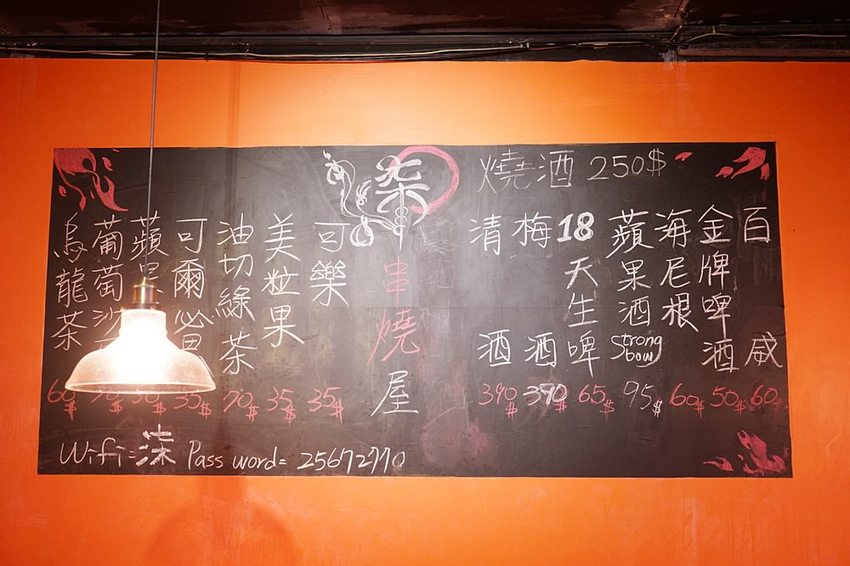 燒酒 250$
百威 60$
金牌啤酒 50$
海尼根 60$
蘋果酒 Strong bow 95$
18天生啤 65$
梅酒 390$
清酒 390$
柒串燒屋
可樂 35$
美粒果 35$
油切綠茶 70$
可爾必 35$
蘋果
葡萄沙
烏龍茶 60$
Wifi=柒 Pass word= 25672770